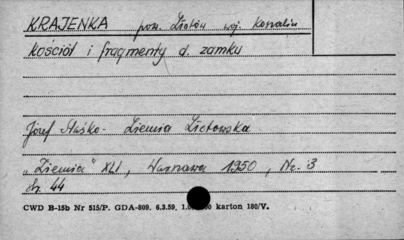 KRAJENKA pow. Złotów woj. Koszalin
Kościół i fragmenty d. zamku
Józef Staśko - Ziemia Złotowska
„Ziemia" XLI, Warszawa 1950, Nr. 3
str. 44
CWD B-15b Nr 515/P. GDA-809. 6.3.59. karton 180/V.